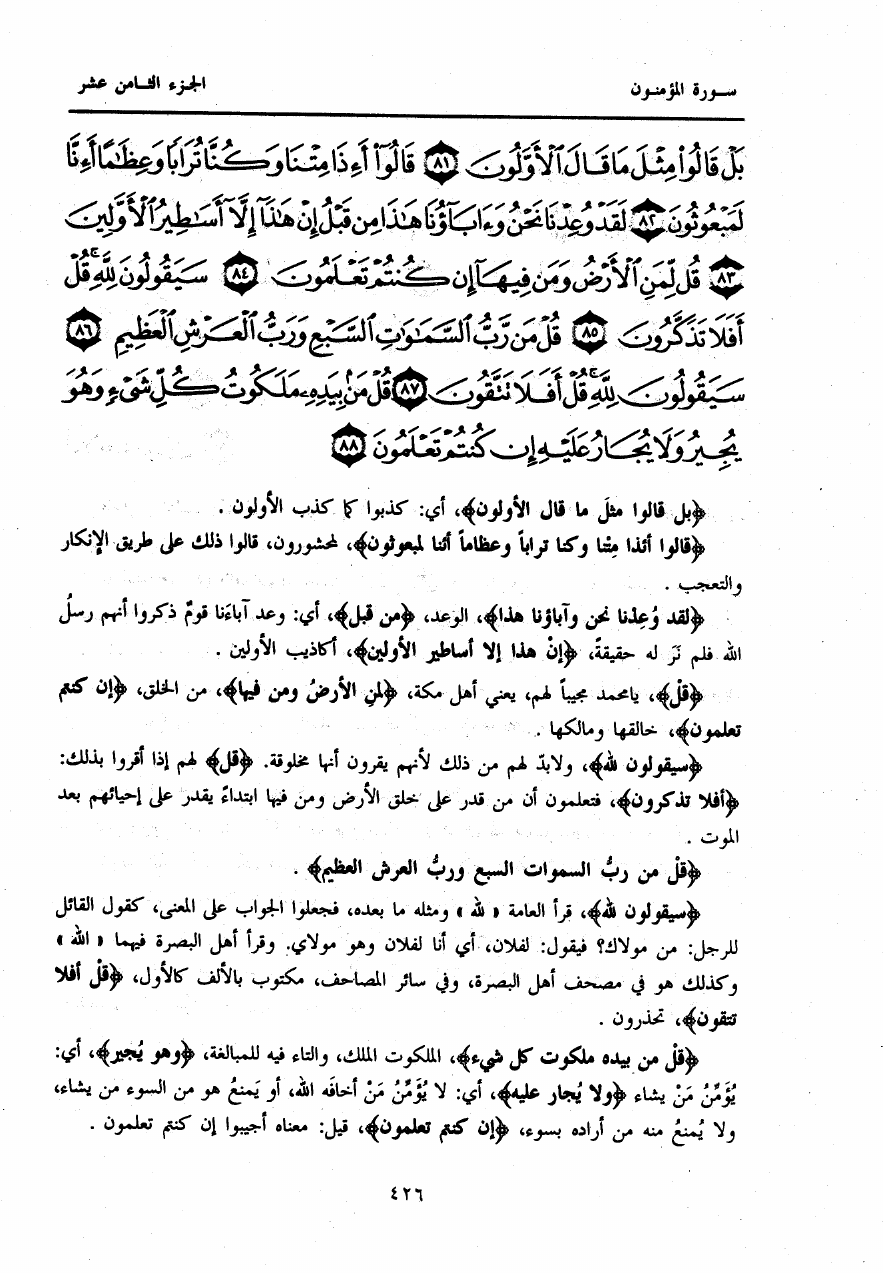 سورة المؤمنون
الجزء الثامن عشر
بَلْ قَالُوا۟ مِثْلَ مَا قَالَ ٱلْأَوَّلُونَ ٨١ قَالُوٓا۟ أَءِذَا مِتْنَا وَكُنَّا تُرَابًا وَعِظَٰمًا أَءِنَّا
لَمَبْعُوثُونَ ٨٢ لَقَدْ وُعِدْنَا نَحْنُ وَءَابَآؤُنَا هَٰذَا مِن قَبْلُ إِنْ هَٰذَآ إِلَّآ أَسَٰطِيرُ ٱلْأَوَّلِينَ
٨٣ قُل لِّمَنِ ٱلْأَرْضُ وَمَن فِيهَآ إِن كُنتُمْ تَعْلَمُونَ ٨٤ سَيَقُولُونَ لِلَّهِ ۚ قُلْ
أَفَلَا تَذَكَّرُونَ ٨٥ قُلْ مَن رَّبُّ ٱلسَّمَٰوَٰتِ ٱلسَّبْعِ وَرَبُّ ٱلْعَرْشِ ٱلْعَظِيمِ ٨٦
سَيَقُولُونَ لِلَّهِ ۚ قُلْ أَفَلَا تَتَّقُونَ ٨٧ قُلْ مَنۢ بِيَدِهِۦ مَلَكُوتُ كُلِّ شَىْءٍ وَهُوَ
يُجِيرُ وَلَا يُجَارُ عَلَيْهِ إِن كُنتُمْ تَعْلَمُونَ ٨٨
﴿بل قالوا مثلَ ما قال الأولون﴾، أي: كذبوا كما كذب الأولون .
﴿قالوا أئذا مِتْنا وكنا تراباً وعظاماً أئنا لمبعوثون﴾، لمحشورون، قالوا ذلك على طريق الإنكار
والتعجب .
﴿لقد وُعِدْنا نحن وآباؤنا هذا﴾، الوعد، ﴿من قبل﴾، أي: وعد آباءَنا قومٌ ذكروا أنهم رسلُ
الله فلم نَرَ له حقيقةً، ﴿إنْ هذا إلا أساطير الأولين﴾، أكاذيب الأولين .
﴿قلْ﴾، يامحمد مجيباً لهم، يعني أهل مكة، ﴿لمنِ الأرضُ ومن فيها﴾، من الخلق، ﴿إن كنتم
تعلمون﴾، خالقها ومالكها .
﴿سيقولون لله﴾، ولابدّ لهم من ذلك لأنهم يقرون أنها مخلوقة. ﴿قل﴾ لهم إذا أقروا بذلك:
﴿أفلا تذكرون﴾، فتعلمون أن من قدر على خلق الأرض ومن فيها ابتداءً يقدر على إحيائهم بعد
الموت .
﴿قلْ من ربُّ السموات السبع وربُّ العرش العظيم﴾ .
﴿سيقولون لله﴾، قرأ العامة « لله » ومثله ما بعده، فجعلوا الجواب على المعنى، كقول القائل
للرجل: من مولاك؟ فيقول: لفلان، أي أنا لفلان وهو مولاي. وقرأ أهل البصرة فيهما « الله »
وكذلك هو في مصحف أهل البصرة، وفي سائر المصاحف، مكتوب بالألف كالأول، ﴿قلْ أفلا
تتقون﴾، تحذرون .
﴿قلْ من بيده ملكوت كل شيء﴾، الملكوت الملك، والتاء فيه للمبالغة، ﴿وهو يُجير﴾، أي:
يُؤَمِّنُ مَنْ يشاء ﴿ولا يُجار عليه﴾، أي: لا يُؤَمَّنُ مَنْ أخافَه الله، أو يَمنعُ هو من السوء من يشاء،
ولا يُمنعُ منه من أراده بسوء، ﴿إن كنتم تعلمون﴾، قيل: معناه أجيبوا إن كنتم تعلمون .
٤٢٦